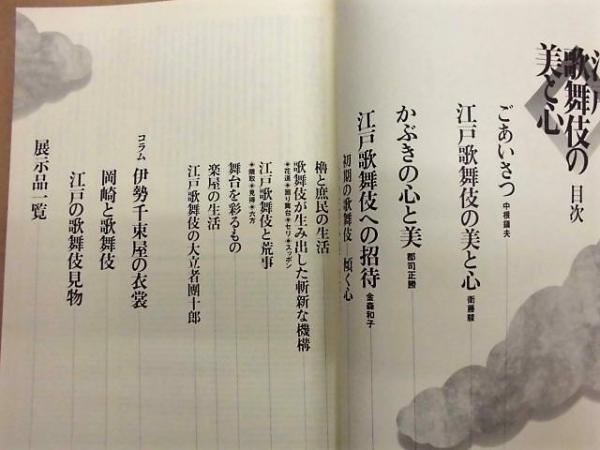 江戸
歌舞伎の
美と心
目次
ごあいさつ 中根鎮夫
江戸歌舞伎の美と心 衛藤駿
かぶきの心と美 郡司正勝
江戸歌舞伎への招待 金森和子
初期の歌舞伎―傾く心
櫓と庶民の生活
歌舞伎が生み出した斬新な機構
●花道●廻り舞台●セリ●スッポン
江戸歌舞伎と荒事
●隈取●見得●六方
舞台を彩るもの
楽屋の生活
江戸歌舞伎の大立者團十郎
コラム 伊勢千束屋の衣裳
岡崎と歌舞伎
江戸の歌舞伎見物
展示品一覧